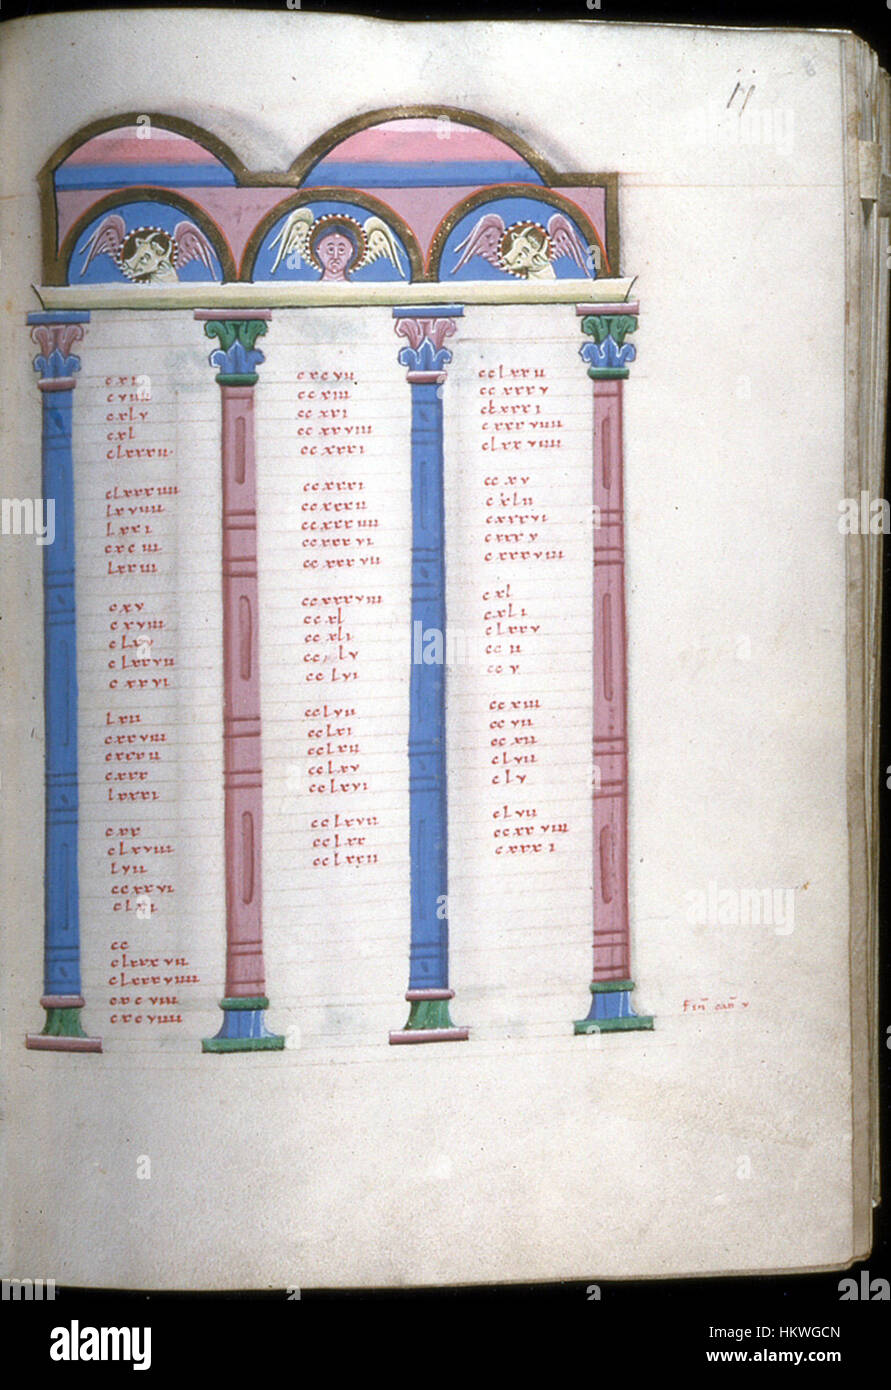 cxi
cviiii
cxlv
cxl
clxxxii
clxxxiiii
lxviiii
lxxi
cxciii
lxxiii
cxv
cxviii
clxv
clxxvii
cxxvi
lxii
cxxviii
cxxxii
cxxx
lxxxi
cxx
clxviii
lvii
ccxxvi
clxi
cc
clxxxvii
clxxxviiii
cxcviii
cxcviiii
cxcvii
ccxiii
ccxxi
ccxxviii
ccxxxi
ccxxxi
ccxxxii
ccxxxiiii
ccxxxvi
ccxxxvii
ccxxxviii
ccxl
ccxli
cclv
cclvi
cclvii
cclxi
cclxii
cclxv
cclxvi
cclxvii
cclxx
cclxxii
cclxxii
ccxxxv
clxxxi
cxxxviiii
clxxviiii
ccxv
cxlii
cxxxvi
cxxxv
cxxxviii
cxl
cxli
clxxv
ccii
ccv
ccxiii
ccvii
ccxii
clvii
clv
clvii
ccxxviii
cxxxi
Fin̄ can̄ v
alamy
Image ID: HKWGCN
www.alamy.com